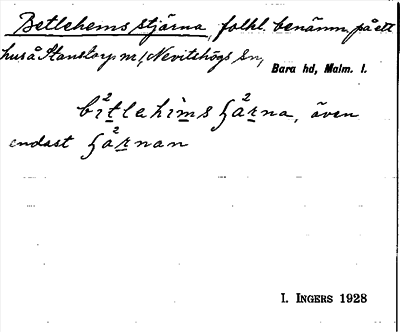 Betlehems stjärna, folkl. benämn. på ett
hus å Stanstorps m/, Nevitshögs sn, Bara hd, Malm. l.
bi²tlehims ʂä²rna, även
endast ʂä²rnan
I. INGERS 1928